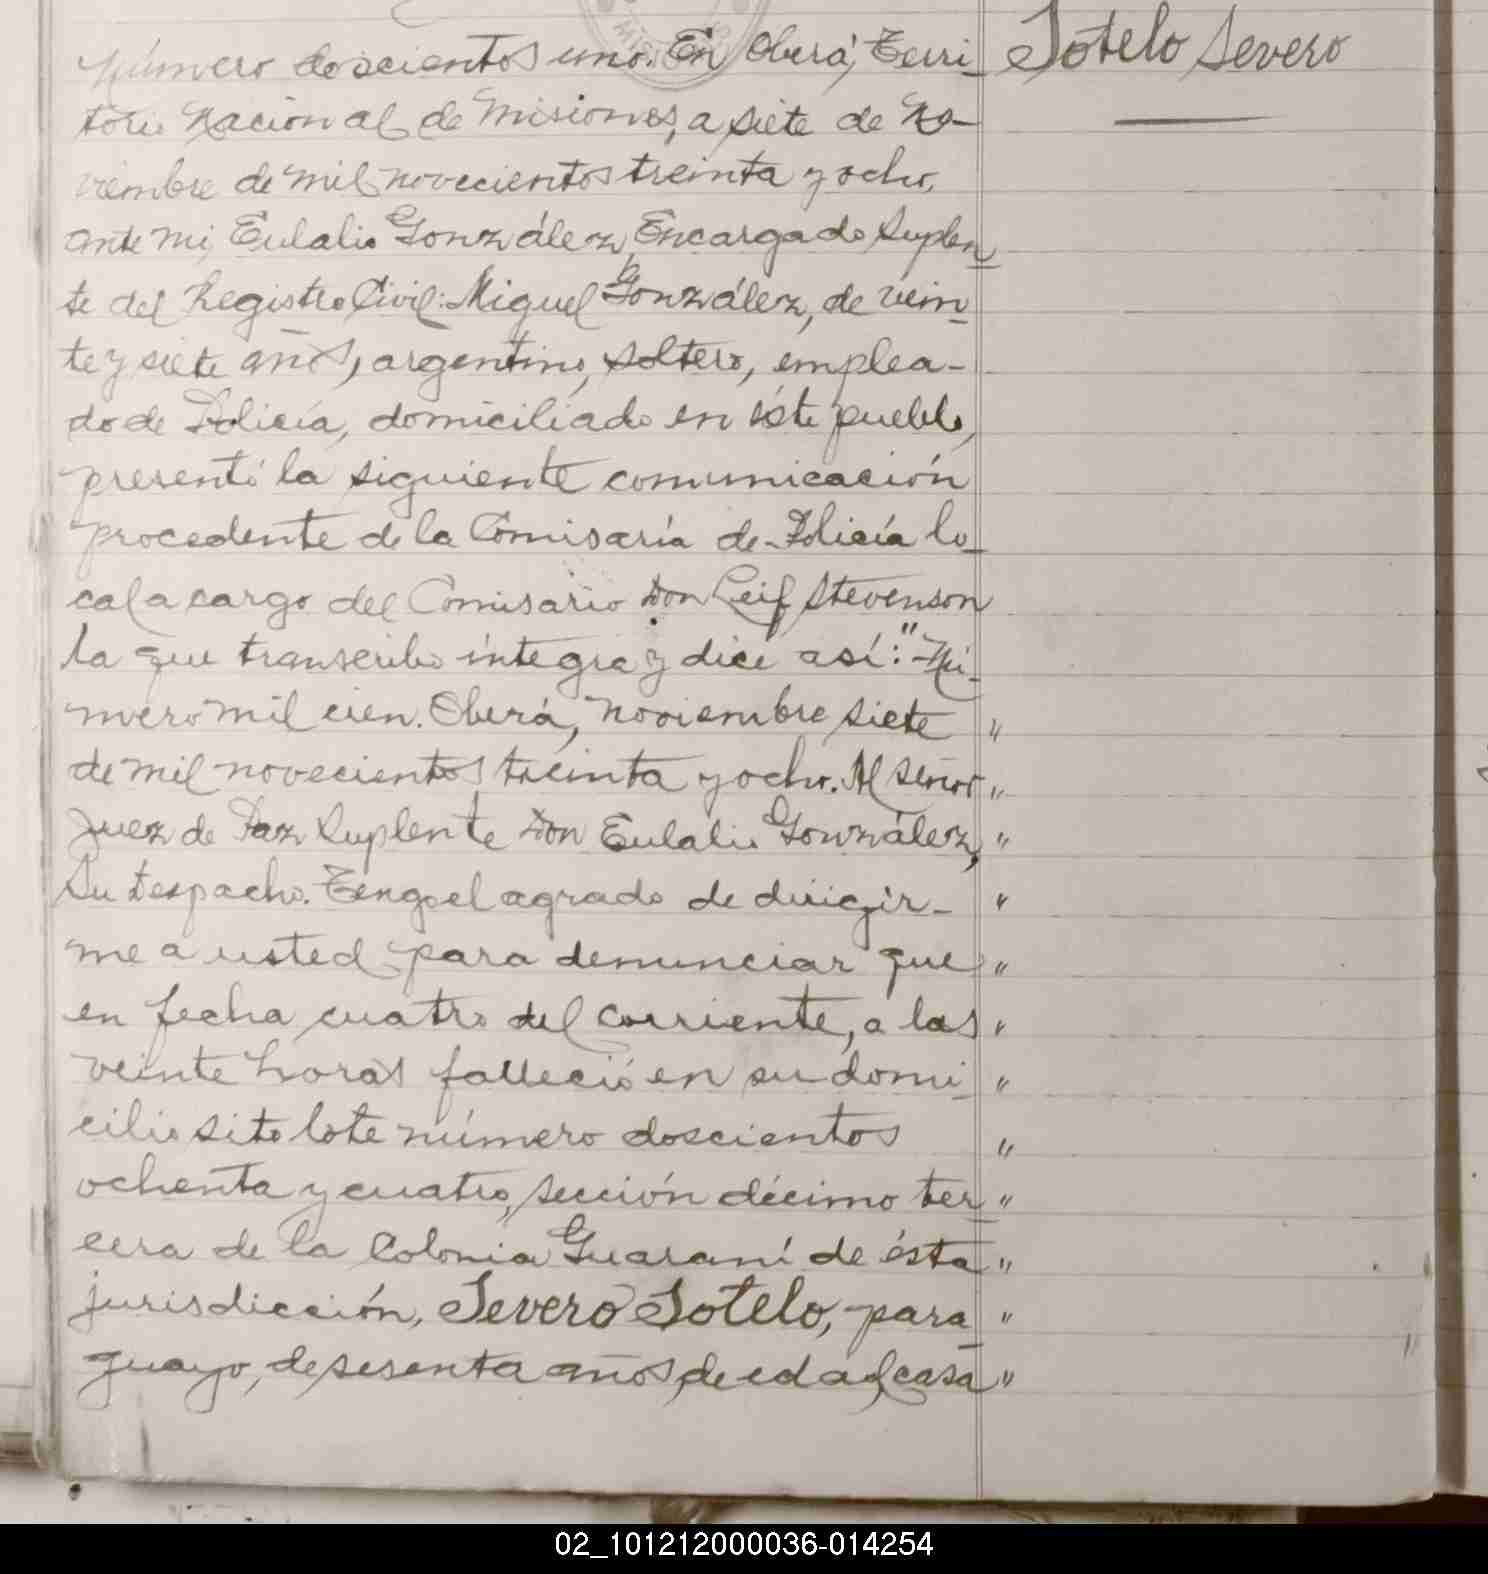 Sotelo Severo
Número doscientos uno. En Oberá, Terri-
torio Nacional de Misiones, a siete de No-
viembre de mil novecientos treinta y ocho,
ante mi, Eulalio González, Encargado Suplen-
te del Registro Civil: Miguel González, de vein-
te y siete años, argentino, soltero, emplea-
do de Policía, domiciliado en éste pueblo,
presentó la siguiente comunicación
procedente de la Comisaría de Policía lo-
cal a cargo del Comisario Don Leif Stevenson
la que transcribo íntegra y dice así: "Nú-
mero mil cien. Oberá, noviembre siete "
de mil novecientos treinta y ocho. Al señor "
Juez de Paz Suplente Don Eulalio González, "
Su despacho. Tengo el agrado de dirigir- "
me a usted para denunciar que "
en fecha cuatro del corriente, a las "
veinte horas falleció en su domi- "
cilio sito lote número doscientos "
ochenta y cuatro, sección décimo ter- "
cera de la Colonia Guaraní de ésta "
jurisdicción, Severo Sotelo, para- "
guayo, de sesenta años de edad, casa- "
MISIONES
02_101212000036-014254